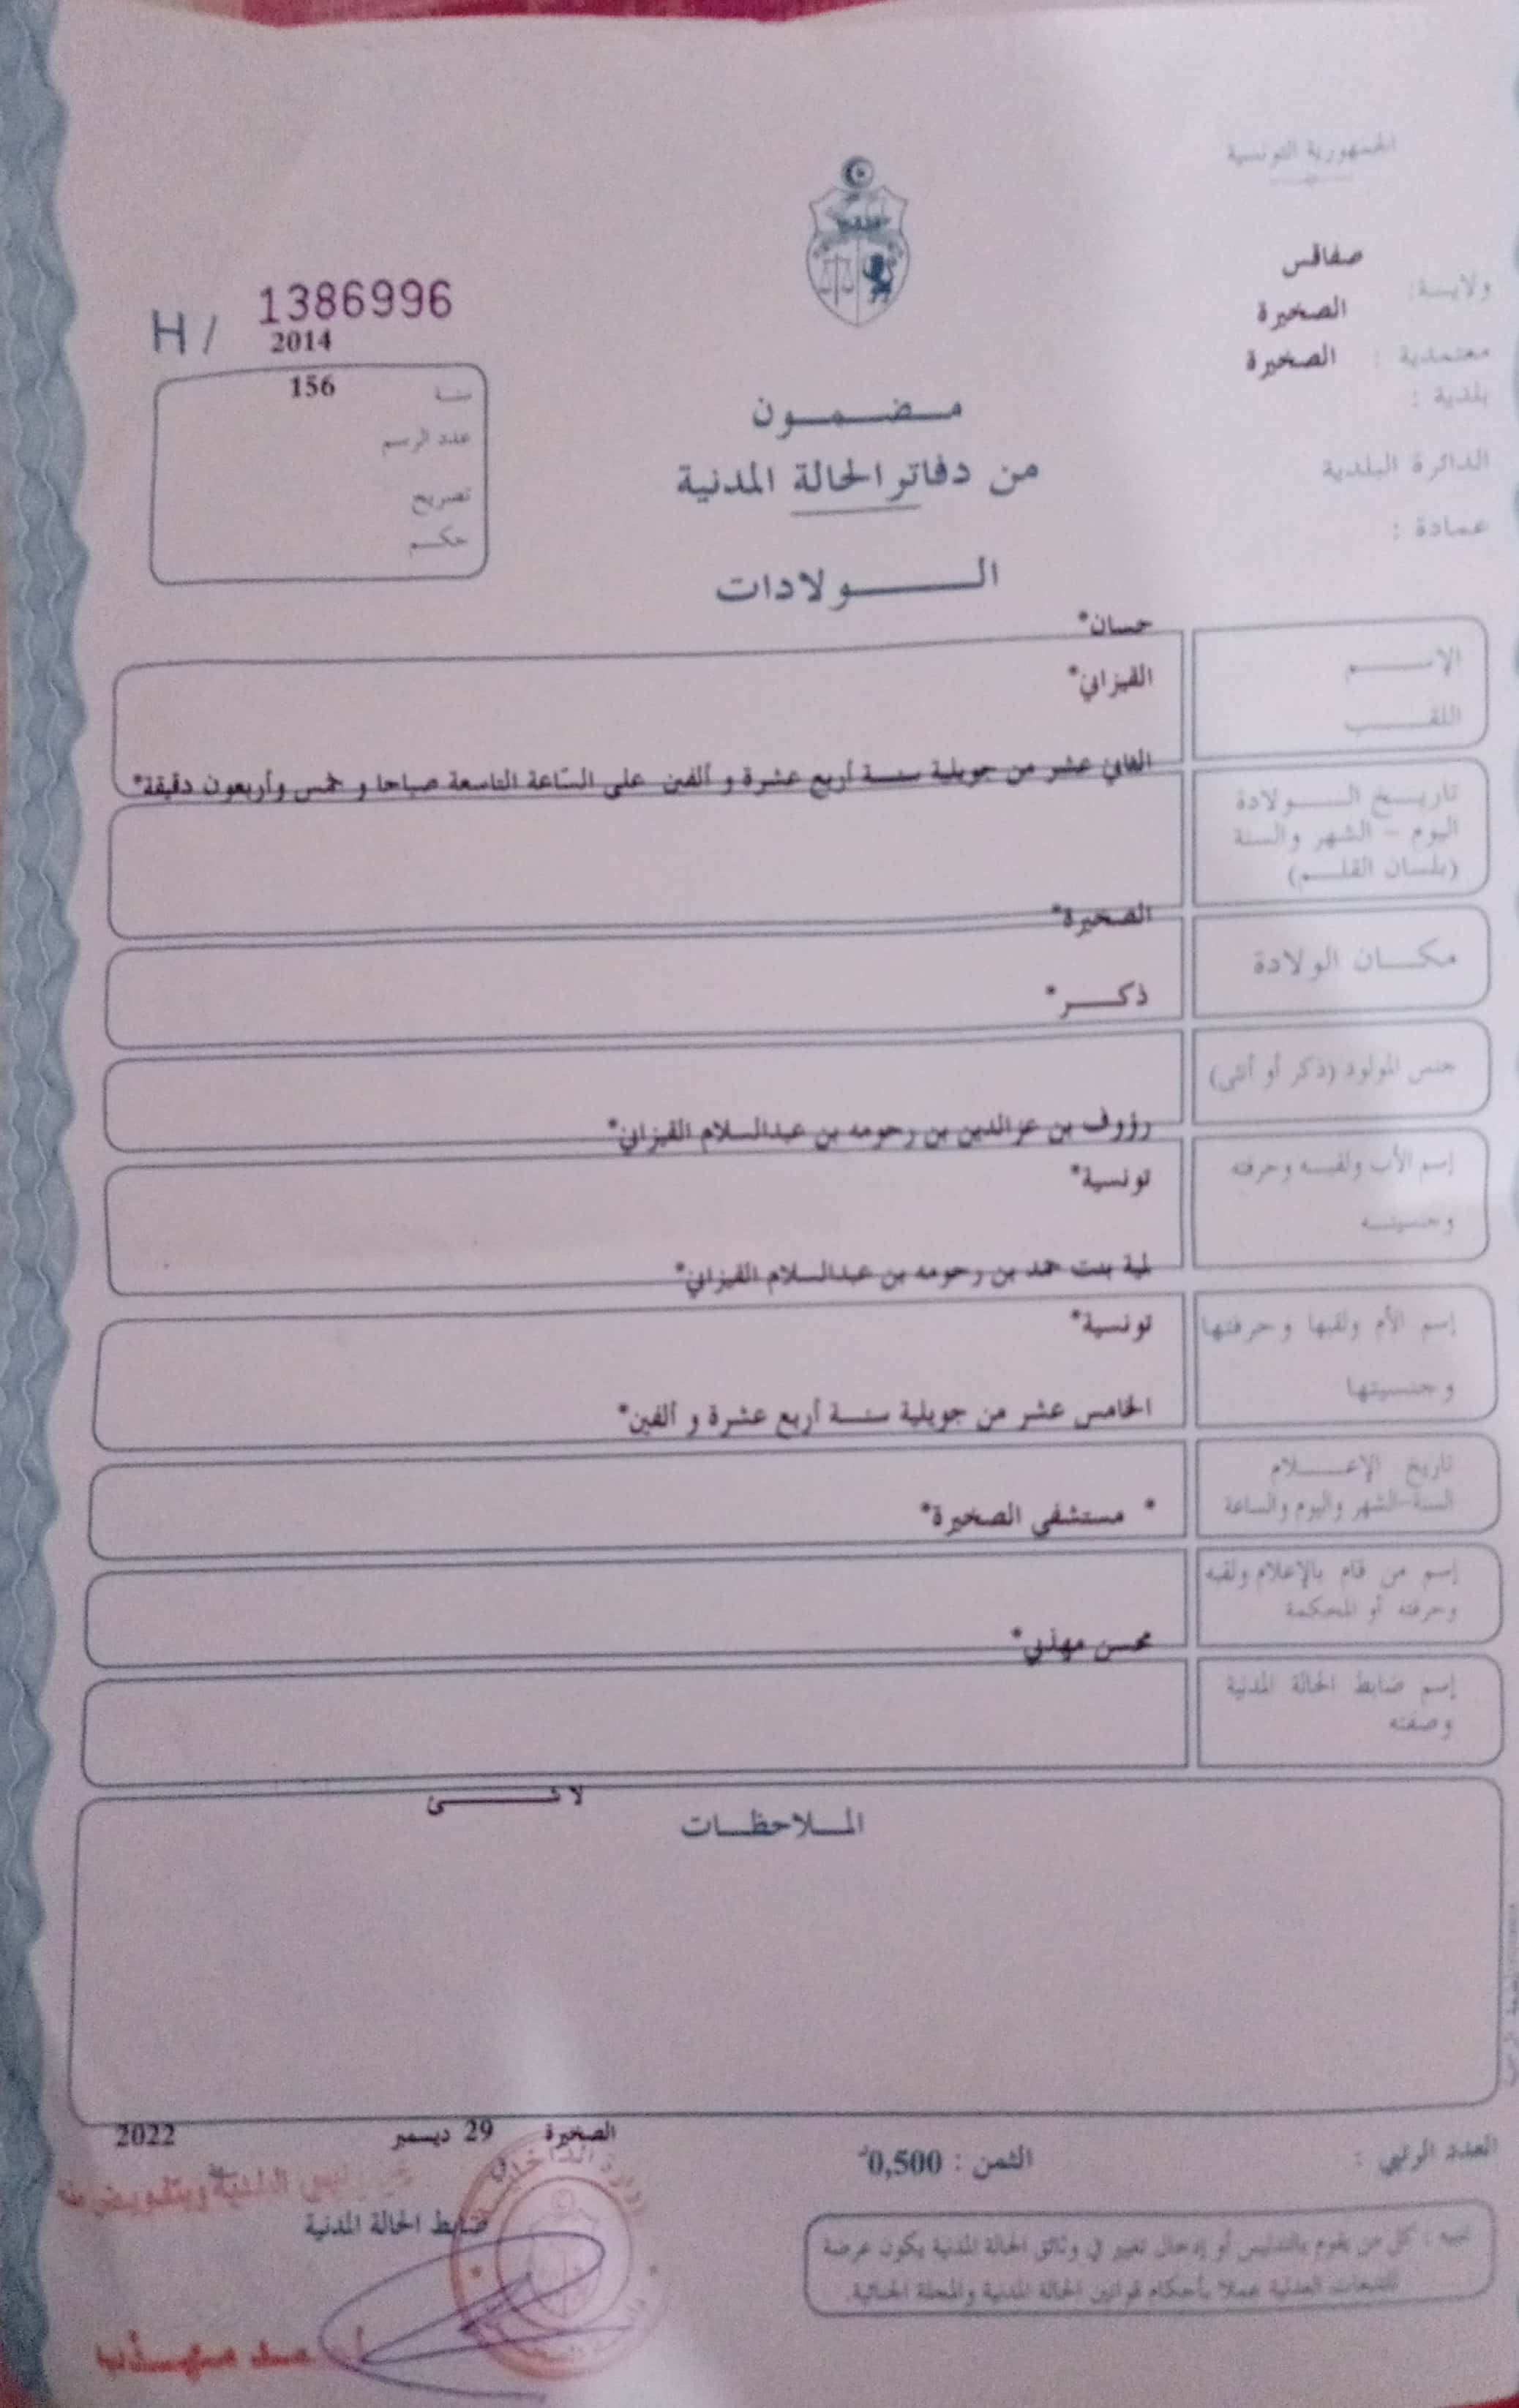 الجمهورية التونسية
ولايــة: صفاقس
معتمدية : الصخيرة
بلدية : الصخيرة
الدائرة البلدية
عمادة :
H / 1386996
2014
سنـة 156
عدد الرسم
تصريح
حكــم
مــضــمــون
من دفاتر الحالة المدنية
الــــولادات
الإســــم حسان*
اللقــــب القيزاني*
تاريــخ الــــولادة الثاني عشر من جويلية سنــة أربع عشرة و ألفين على السّاعة التاسعة صباحا و خمس وأربعون دقيقة*
اليوم – الشهر والسنة
(بلسان القلــم)
مكــان الولادة الصخيرة*
جنس المولود (ذكر أو أنثى) ذكــــر*
إسم الأب ولقبــه وحرفته رؤوف بن عزالدين بن رحومه بن عبدالسلام القيزاني*
وجنسيتــه تونسية*
إسم الأم ولقبها وحرفتها لمية بنت حمد بن رحومه بن عبدالسلام القيزاني*
وجنسيتها تونسية*
تاريخ الإعــــلام الخامس عشر من جويلية سنــة أربع عشرة و ألفين*
السنة-الشهر واليوم والساعة
إسم من قام بالإعلام ولقبه * مستشفى الصخيرة*
وحرفته أو المحكمة
إسم ضابط الحالة المدنية محسن مهذبي*
وصفته
لا شــــئ
المــلاحظــات
الصخيرة 29 ديسمبر 2022
العدد الرتبي :
الثمن : 0,500د
ضابط الحالة المدنية
تنبيه : كل من يقوم بالتدليس أو إدخال تغيير في وثائق الحالة المدنية يكون عرضة
للتتبعات العدلية عملا بأحكام قوانين الحالة المدنية والمجلة الجنائية.